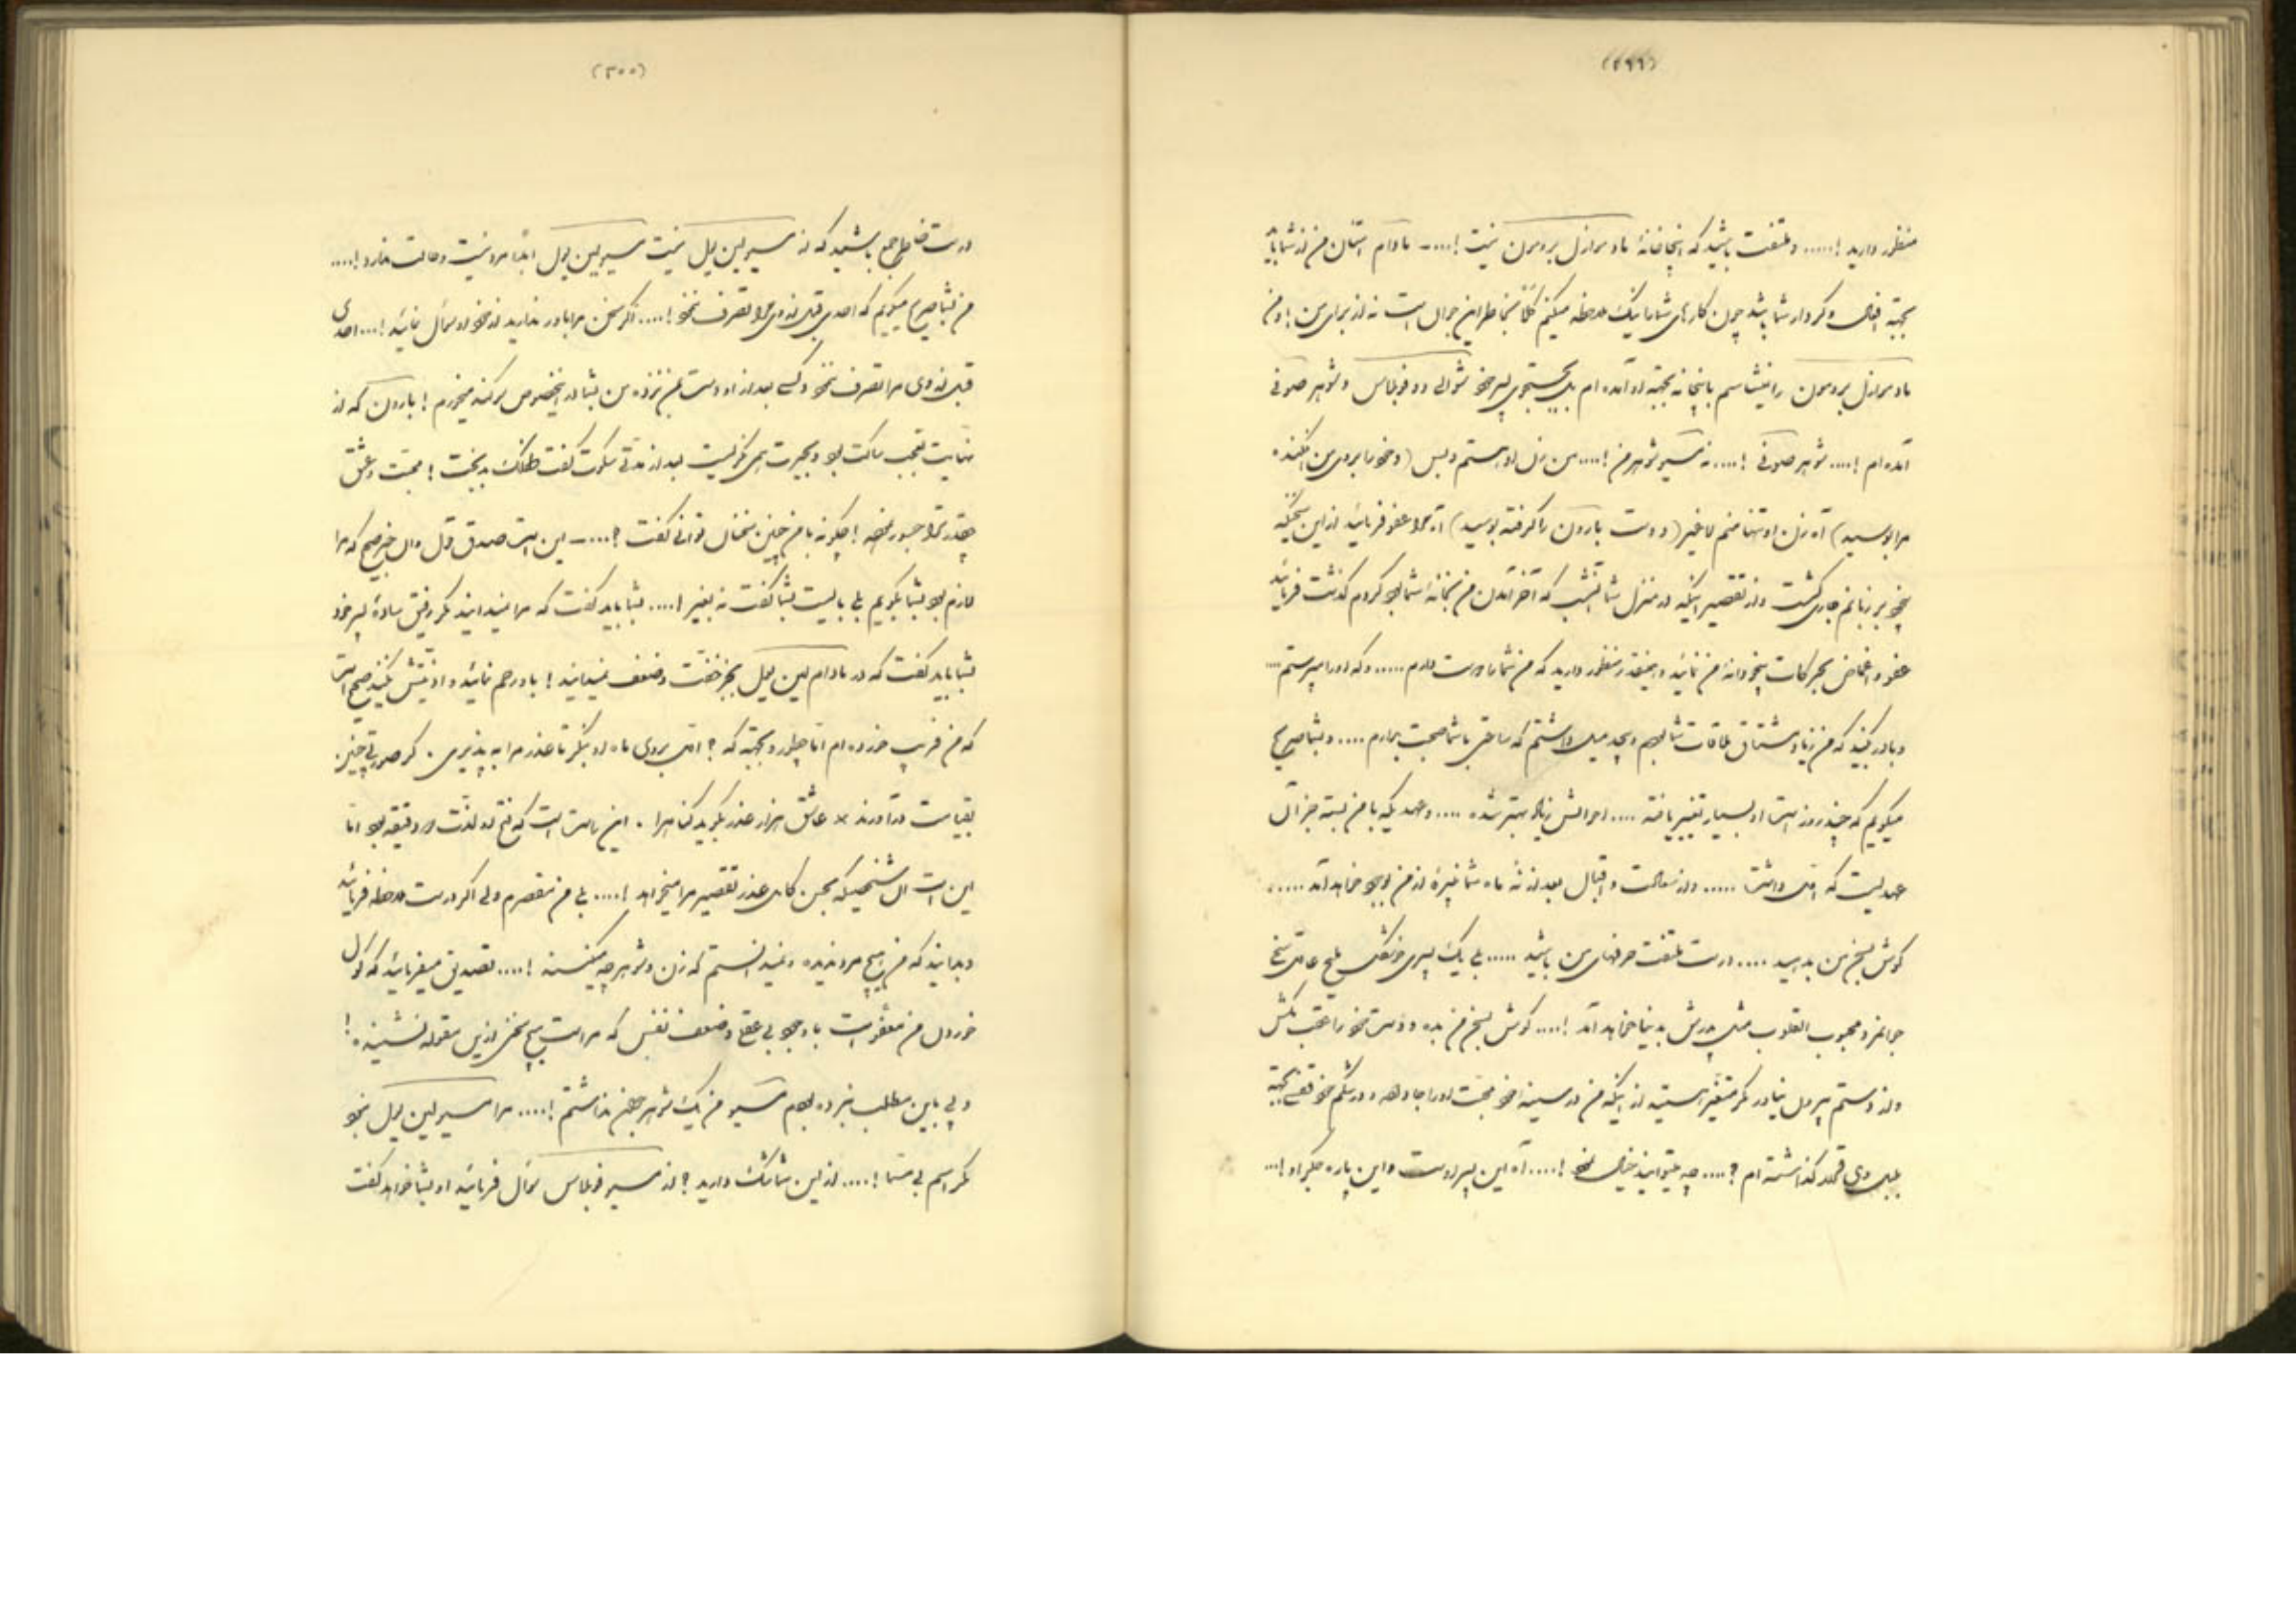 (۲۹۹)
منظور دارید !..... و ملتفت باشید که اینجا خانهٔ مادموازل بردمون نیست !.... مادام امتنان من از شما باید
بجهة افعال و کردار شما باشد چون کارهای شما را نیک ملاحظه میکنم کلاً بخاطر این جوان است نه از برای من ! و من
مادموازل بردمون را نمیشناسم باینجا نه بجهة او آمده‌ام بلکه بجستجوی پسر خود شوالیه دو فوبلاس و شوهر صوری
آمده‌ام !.... شوهر صوری !.... نه مسیو شوهر من !.... من زن او هستم و بس (و خود را بروی من افکنده
مرا بوسید) آه زن او تنها منم لا غیر (دست بارون را گرفته بوسید) آه مرا عفو فرمائید از این سخنیکه
بر زبانم جاری گشت و از تقصیر اینکه در منزل شما آنشب که آخر آمدن من بخانهٔ شما بود کردم گذشت فرمائید
عفو و اغماض بحرکات بیخودانهٔ من نمائید و اینقدر منظور دارید که من شما را دوست دارم ..... و که او را میپرستم ....
و باور کنید که من زیاد مشتاق ملاقات شما بودم و بحد میل داشتم که ساعتی با شما صحبت بدارم .... و بشما صریح
میگویم که چند روز است او بسیار تغییر یافته .... احوالش زیاد بهتر شده .... و عهدیکه با من بسته جز آن
عهدیست که اول داشت ..... و از سعادت و اقبال بعد از نه ماه شما نبیرهٔ از من بوجود خواهد آمد .....
گوش بسخن من بدهید .... درست ملتفت حرفهای من باشید ..... بلی یک پسری خوشگل ملیح عاقل سخی
جوانمرد محبوب القلوب مثل پدرش بدنیا خواهد آمد !.... گوش بسخن من بده و دست خود را عقب مکش
و از دستم بیرون میاور مگر متغیر هستید از اینکه من در سینهٔ خود محبت او را جا داده و در شکم خود بجهة
بلبل وی گذاشته‌ام ؟.... چه میتوانید خیال نمود !.... آه این پسر اوست و این پاره جگر او !...
(۳۰۰)
درست خاطر جمع باشید که از مسیو لین یول نیست مسیو لین یول ابداً مرد نیست و حالت ندارد !....
من بشما صریح میگویم که احدی قبل از وی مرا تصرف ننمود !.... اگر سخن مرا باور ندارید از خود او سؤال نمائید !... احدی
قبل از وی مرا تصرف ننمود و کسی بعد از او دست بمن نزده من بشما در اینخصوص سوگند میخورم ! بارون که از
نهایت تعجب ساکت بود و بحیرت بمن نگریست بعد از مدتی سکوت گفت طفلک بدبخت ! محبت و عشق
چقدر ترا جسور نموده ! چگونه با من چنین سخنان توانی گفت ؟.... این است صدق قول و آن خبر صحیح که مرا
لازم بود بشما بگویم بلی بایست بشما گفت نه بغیر !.... بشما باید گفت که مرا نمیدانید مگر رفیق سادهٔ پسر خود
بشما باید گفت که در مادام لین یول بجز خفت و ضعف نمیدانید ! باو رحم نمائید و اذیتش نکنید صحیح است
که من فریب خورده‌ام اما چطور و بجهة که ؟ اول بروی ماه او بنگر تا عذر مرا به پذیری . گر صورتی چنین
بقیامت درآورند × عاشق هزار عذر بگوید گناه را . این راست است که فتح او لذت دو دقیقه بود اما
این است آن شخصیکه بحسن کامل عذر تقصیر مرا میخواهد !.... بلی من مقصرم ولی اگر درست ملاحظه فرمائید
و بدانید که من هیچ مرد ندیده و نمیدانستم که زن و شوهر چه میکنند !.... تصدیق میفرمائید که گول
خوردن من معفو است با وجود بی عقلی و ضعف نفس که مراست هیچ سخنی از این مقوله نشنیده !
و پی باین مطلب نبرده بودم مسیو من یک شوهر حقیقی نداشتم !.... مرا مسیو لین یول نبود
مگر اسم بی مسمّا !.... از این شما شک دارید ؟ از مسیو فوبلاس سؤال فرمائید او بشما خواهد گفت